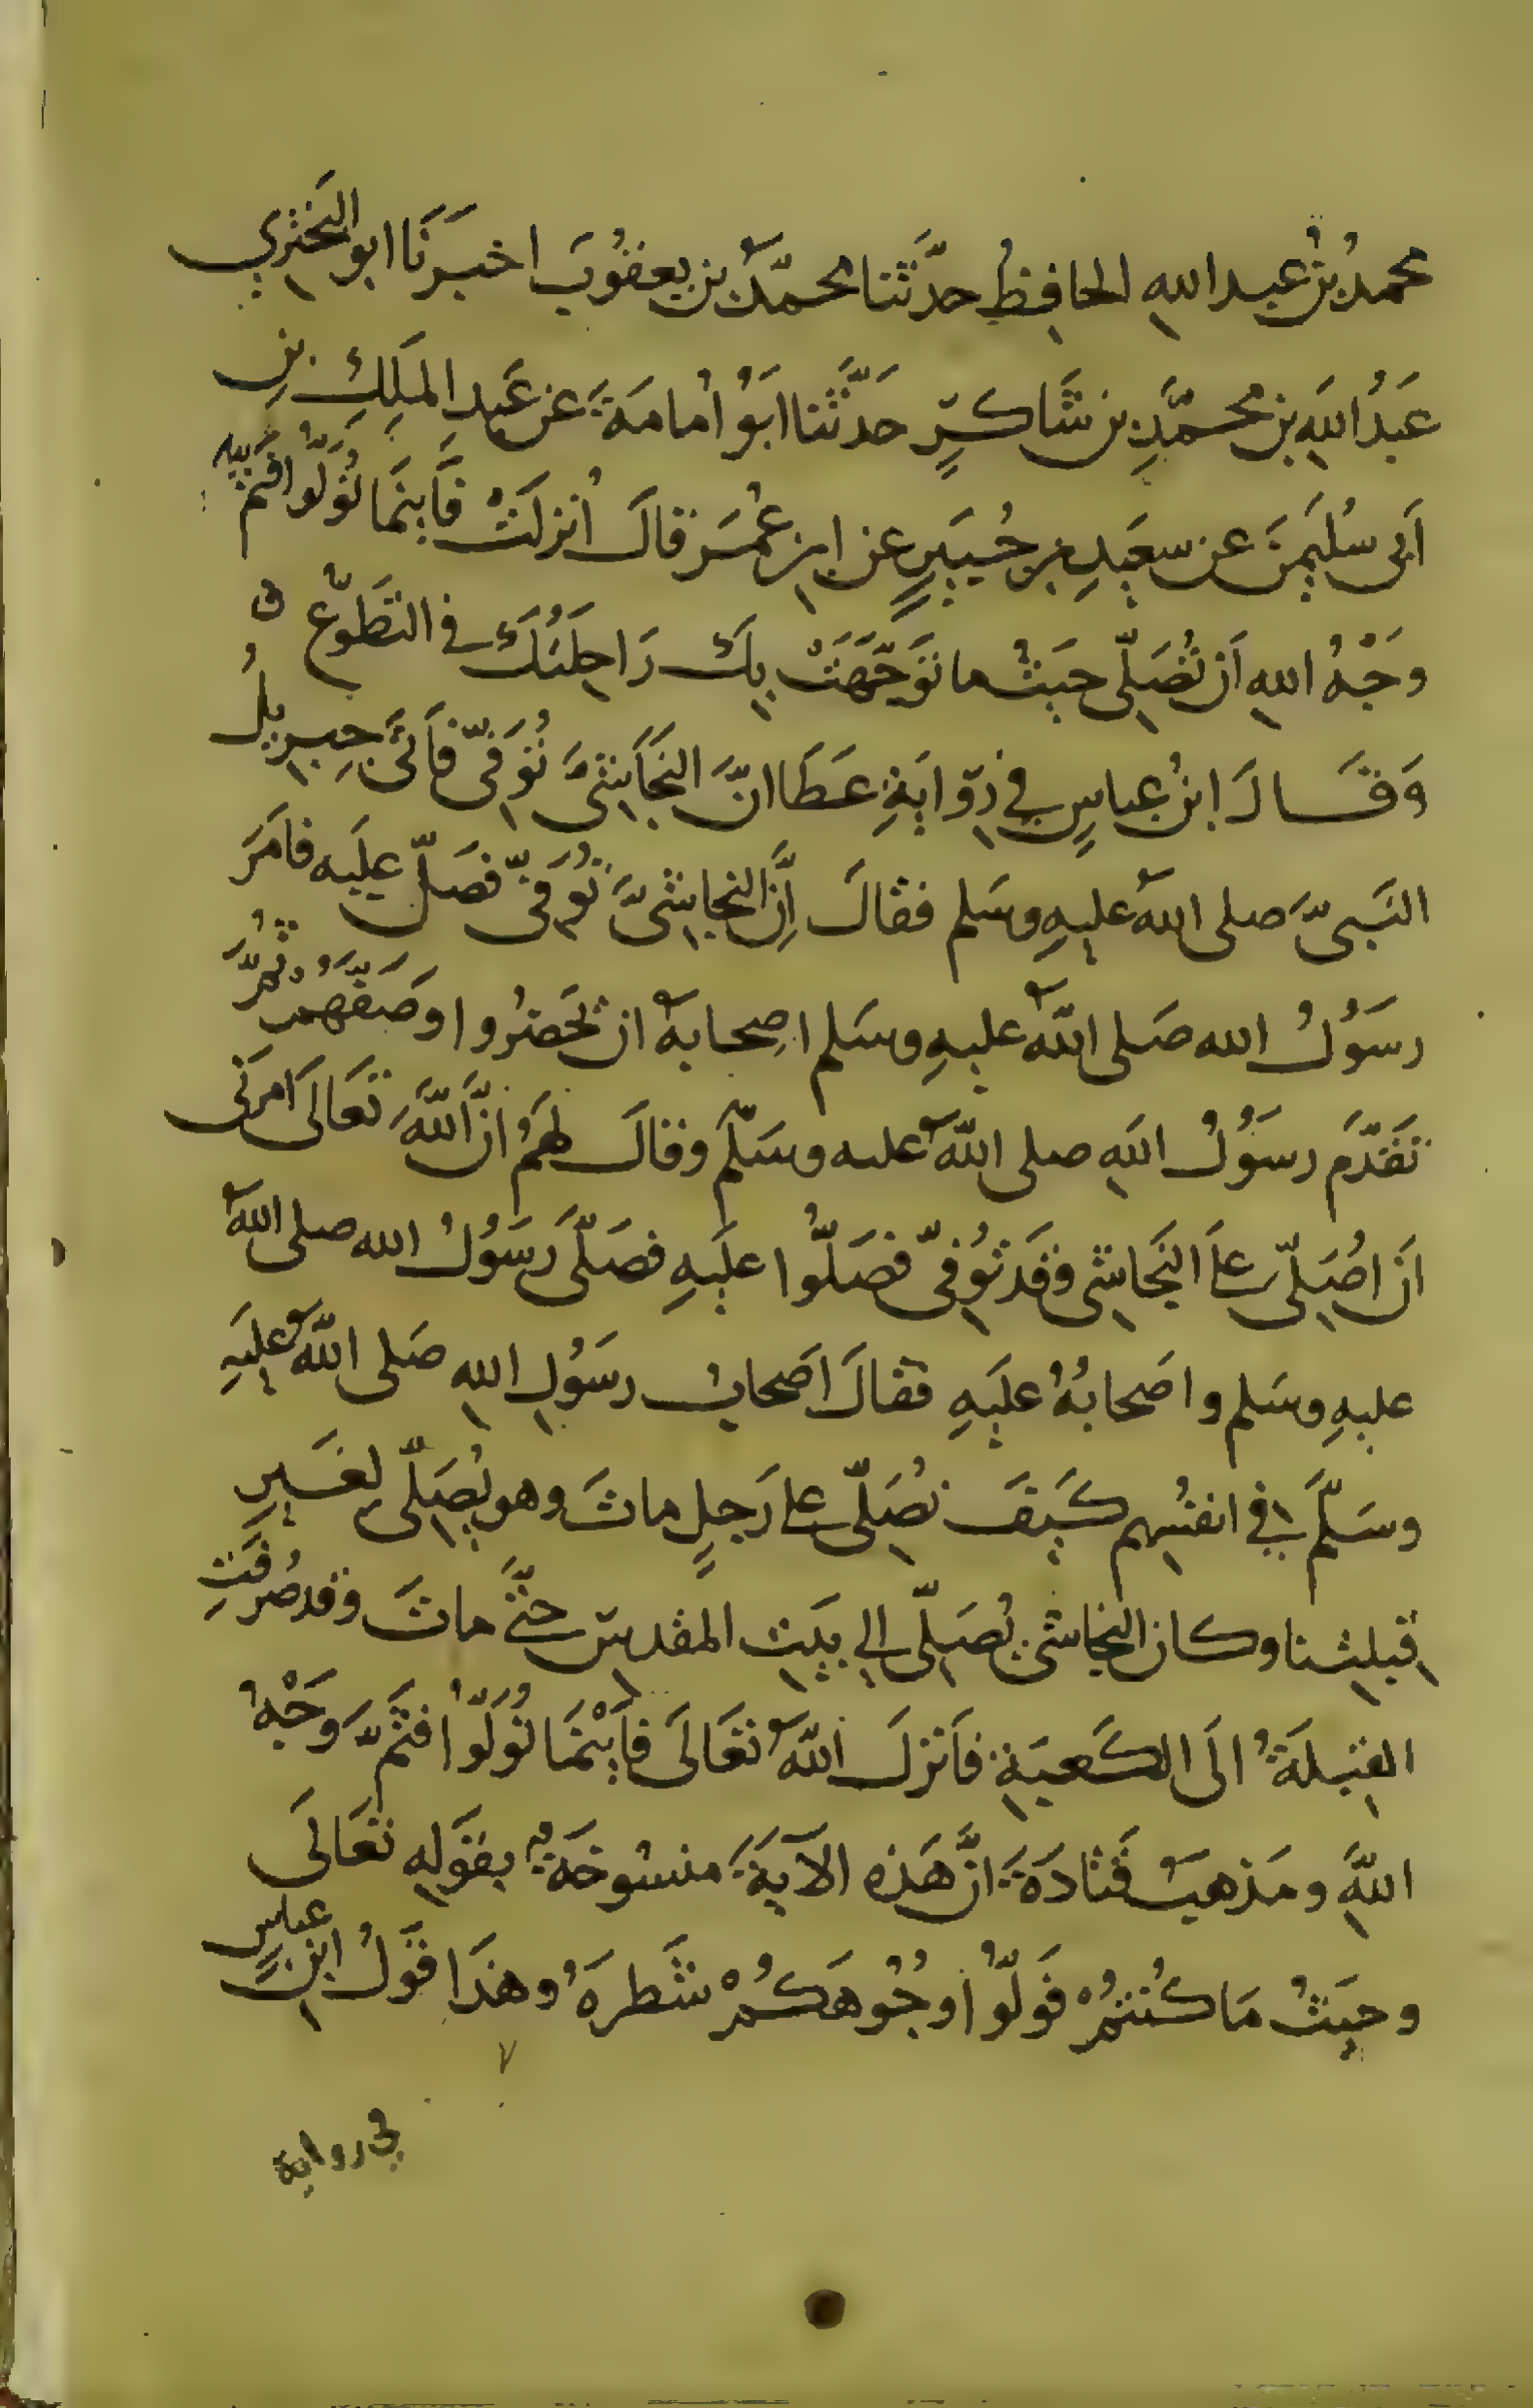 محمدُ بنُ عبد اللهِ الحافِظُ حدَّثنا محمَّدُ بن يعقُوبَ اخبَرَنَا ابو البَخْتَرِي
عَبدُ اللهِ بن محمَّدِ بن شَاكرٍ حَدَّثَنا ابَوُ اُمامَةَ عن عَبدِ الملِكِ بنِ
اَبى سُلَيمنَ عن سعَيدِ بن جُبَيرٍ عن ابن عُمَرَ قالَ اُنزلَتْ فَأَينَمَا تُوَلُّوا فثمَّ
وَجْهُ اللهِ اَن تُصَلّى حيَثُ ما توَجَّهَتْ بِكَ رَاحِلَتُكَ في التطَوُّعِ
وَقَالَ ابنُ عباسٍ في رِوَايَةِ عَطَا انَّ النَجَاشىَّ تُوُفّىَ فأَتَى جِبرِيلُ
النَبىَّ صلى اللهُ عليهِ وسَلم فقالَ إِنَّ النجاشىَّ تُوُفّىَ فصَلِّ علَيه فاَمَرَ
رسَوُلُ الله صَلى اللهُ عليهِ وسَلم اصحابهُ ان يَحضرُوا وصَفَّهُمْ ثمَّ
تقَدَّمَ رسَوُلُ اللهِ صلى اللهُ عليه وسَلّم وقالَ لهَمُ انَّ اللهَ تعَالىَ اَمَرَنى
اَن اصُلّىَ علَى النَجاشى وقدَ توُفّىَ فصَلُّوا علَيهِ فصَلَّى رسَوُلُ الله صلى اللهُ
عليهِ وسَلم واصَحابُهُ علَيهِ فقالَ اصَحابُ رسَوُلِ اللهِ صَلى اللهُ علَيهِ
وسَلَّمَ في انفسُِهم كَيفَ نصَُلّى على رَجلٍ ماتَ وهو يُصَلّى لِغَيرِ
قِبلتِنا وكان النجاشى يُصَلّى الى بيَتِ المقدسِ حتَّى ماتَ وقد صُرفَتِ
القِبلَةُ الَى الكَعبَةِ فاَنزلَ اللهُ تعَالىَ فأَيْنَمَا تُوَلُّوا فثَمَّ وَجْهُ
اللهِ ومَذهبَُ قَتَادَةَ انَّ هَذه الآيَةَ منسوُخَةٌ بقَولِهِ تعَالَى
وحيَثُ مَا كُنتمُْ فَوَلُّوا وُجُوهَكُمْ شَطرَهُ وهذَا قَولُ ابنِ عباسٍ
في رواية